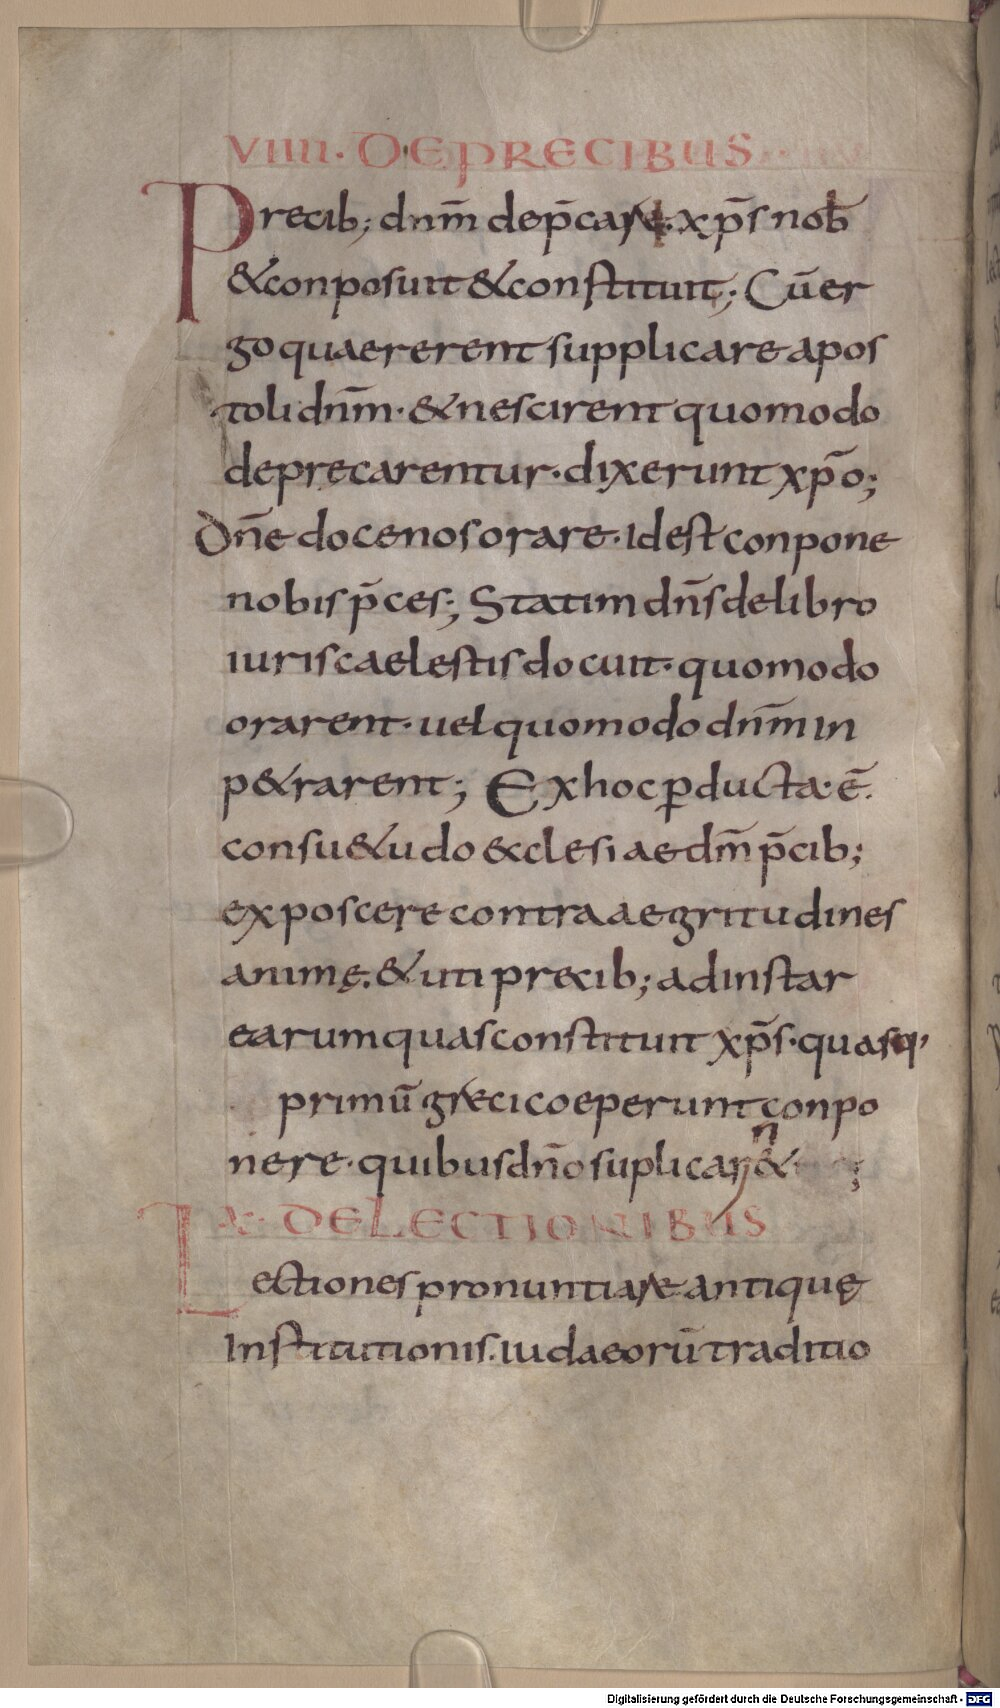 VIIII. DE PRECIBUS
Precib; dnm̄ dep̄care. xp̄s nob̄
& conposuit & constituit; Cū er
go quaererent supplicare apos
toli dnm̄. & nescirent quomodo
depręcarentur. dixerunt xp̄o;
Dn̄e doce nos orare. Id est conpone
nobis p̄ces; Statim dn̄s de libro
iuris caelestis docuit. quomodo
orarent. uel quomodo dnm̄ in
p&rarent; Ex hoc ꝑducta. ē.
consu&udo ecclesiae dm̄ p̄cib;
exposcere contra aegritudines
animę. & uti precib; ad instar
earum quas constituit xp̄s. quasq;
primū greci coeperunt conpo
nere. quibus dn̄o suplicar&
n
X. DE LECTIONIBUS
Lectiones pronuntiare antiquę
Institutionis. iudaeorū traditio
Digitalisierung gefördert durch die Deutsche Forschungsgemeinschaft - DFG